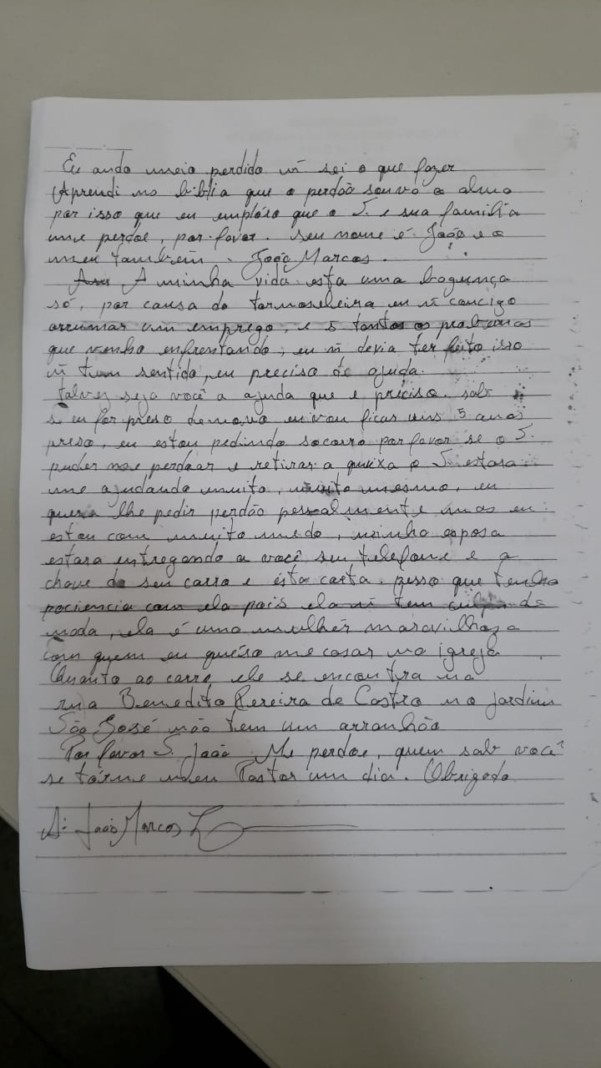 Eu ando meio perdido ñ sei o que fazer
Aprendi na biblia que o perdão sauva a alma
por isso que eu emploro que o S. e sua familia
me perdoe, por favor. seu nome é João e o
meu também. João Marcos.
A minha vida esta uma bagunça
só, por causa da tornoseleira eu ñ concigo
arrumar um emprego, e s tantos os problemas
que venho enfrentando, eu ñ devia ter feito isso
ñ tem sentido, eu preciso de ajuda.
talvez seja você a ajuda que e préciso. sab
se eu for preso denovo eu vou ficar uns 5 anos
preso, eu estou pedindo socorro por favor se o S.
puder me perdoar e retirar a queixa o S. estara
me ajudando muito, muito mesmo, eu
queria lhe pedir perdão pessoalmente mas eu
estou com muito medo, minha esposa
estara entregando a você seu telefone e a
chave do seu carro e esta carta. pesso que tenha
paciencia com ela pois ela ñ tem culpa de
nada, ela é uma mulher maravilhoza
com quem eu quéiro me casar na igreja
Quanto ao carro, ele se encontra na
rua Benedito Pereira de Castro no jardim
São José não tem um arranhão
Por favor S. João Me perdoe, quem sab você
se tórne meu Pastor um dia. Obrigado
A: João Marcos